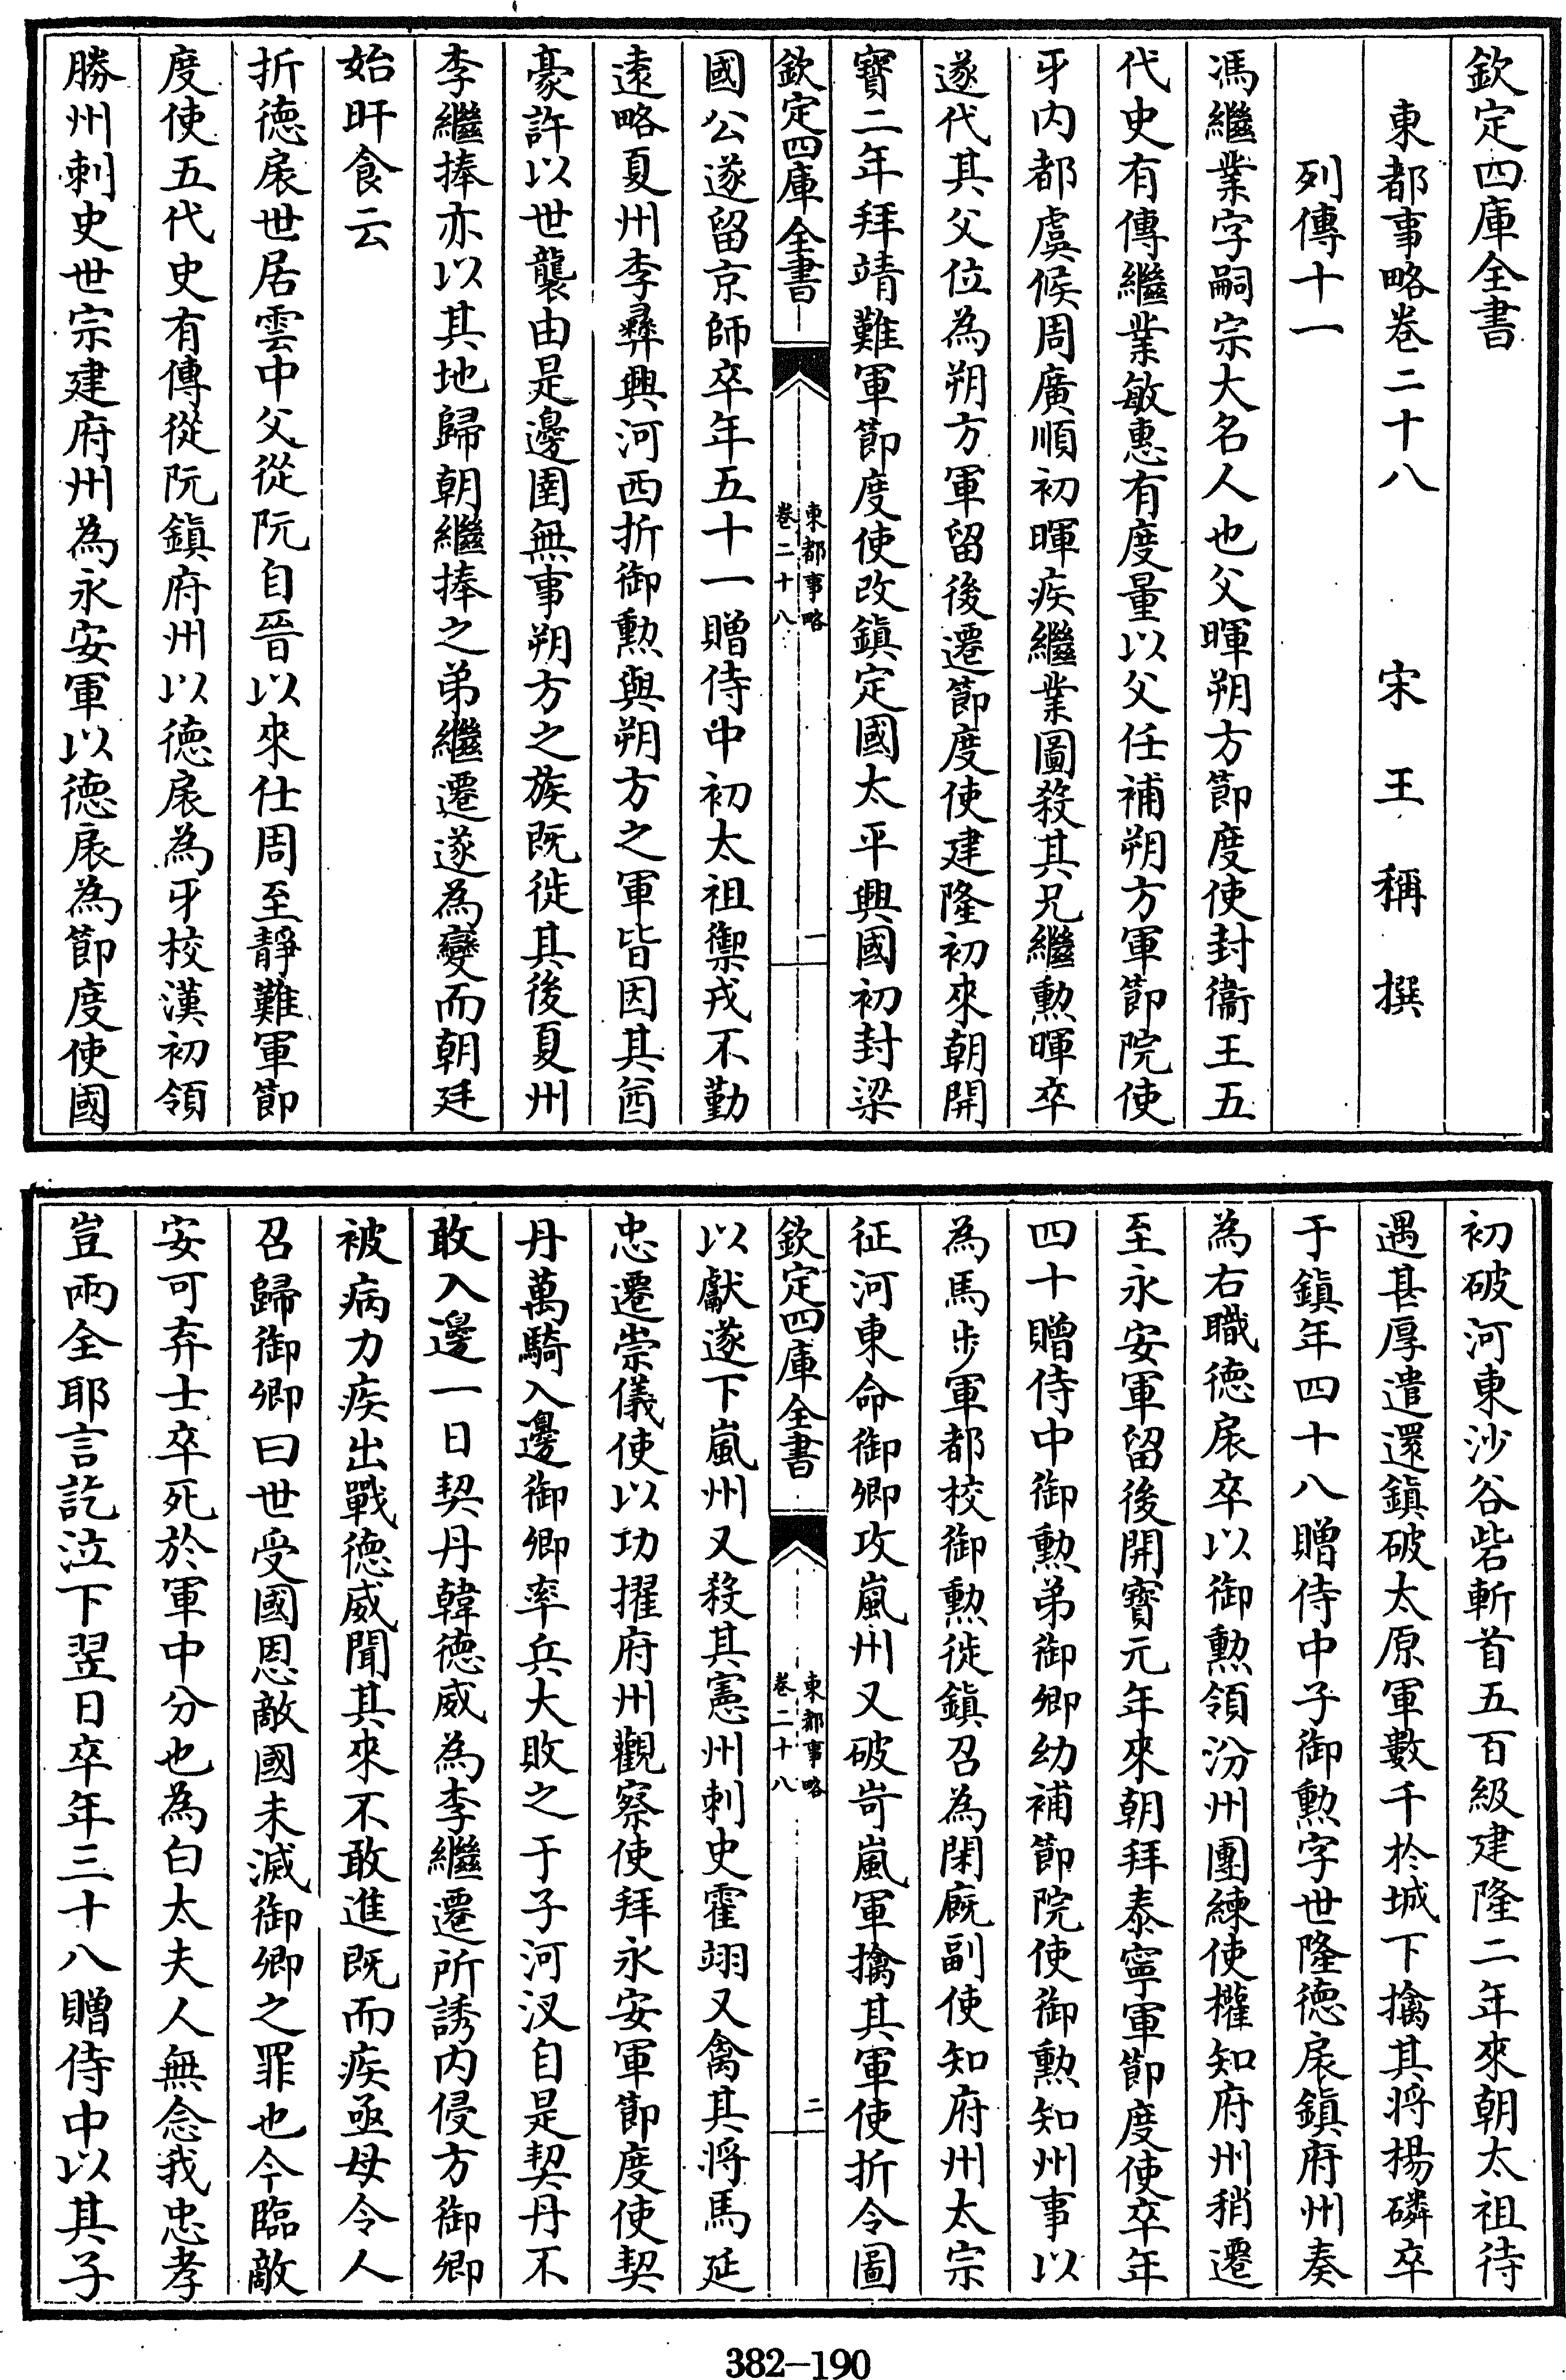 欽定四庫全書
東都事略卷二十八　宋王稱撰
列傳十一
馮繼業字嗣宗大名人也父暉朔方節度使封衞王五
代史有傳繼業敏惠有度量以父任補朔方軍節院使
牙内都虞候周廣順初暉疾繼業圖殺其兄繼勲暉卒
遂代其父位為朔方軍留後遷節度使建隆初來朝開
寶二年拜靖難軍節度使改鎮定國太平興國初封梁
欽定四庫全書
東都事略
卷二十八
一
國公遂留京師卒年五十一贈侍中初太祖禦戎不勤
遠略夏州李彝興河西折御勲與朔方之軍皆因其酋
豪許以世襲由是邊圉無事朔方之族既徙其後夏州
李繼捧亦以其地歸朝繼捧之弟繼遷遂為變而朝廷
始旰食云
折德扆世居雲中父從阮自晉以來仕周至靜難軍節
度使五代史有傳從阮鎮府州以德扆為牙校漢初領
勝州刺史世宗建府州為永安軍以德扆為節度使國
初破河東沙谷砦斬首五百級建隆二年來朝太祖待
遇甚厚遣還鎮破太原軍數千於城下擒其将楊磷卒
于鎮年四十八贈侍中子御勲字世隆德扆鎮府州奏
為右職德扆卒以御勲領汾州團練使權知府州稍遷
至永安軍留後開寶元年來朝拜泰寧軍節度使卒年
四十贈侍中御勲弟御卿幼補節院使御勲知州事以
為馬步軍都校御勲徙鎮召為閑廐副使知府州太宗
征河東命御卿攻嵐州又破岢嵐軍擒其軍使折令圖
欽定四庫全書
東都事略
卷二十八
二
以獻遂下嵐州又殺其憲州刺史霍翊又禽其将馬延
忠遷崇儀使以功擢府州觀察使拜永安軍節度使契
丹萬騎入邊御卿率兵大敗之于子河汊自是契丹不
敢入邊一日契丹韓德威為李繼遷所誘内侵方御卿
被病力疾出戰德威聞其來不敢進既而疾亟母令人
召歸御卿曰世受國恩敵國未滅御卿之罪也今臨敵
安可弃士卒死於軍中分也為白太夫人無念我忠孝
豈兩全耶言訖泣下翌日卒年三十八贈侍中以其子
382-190